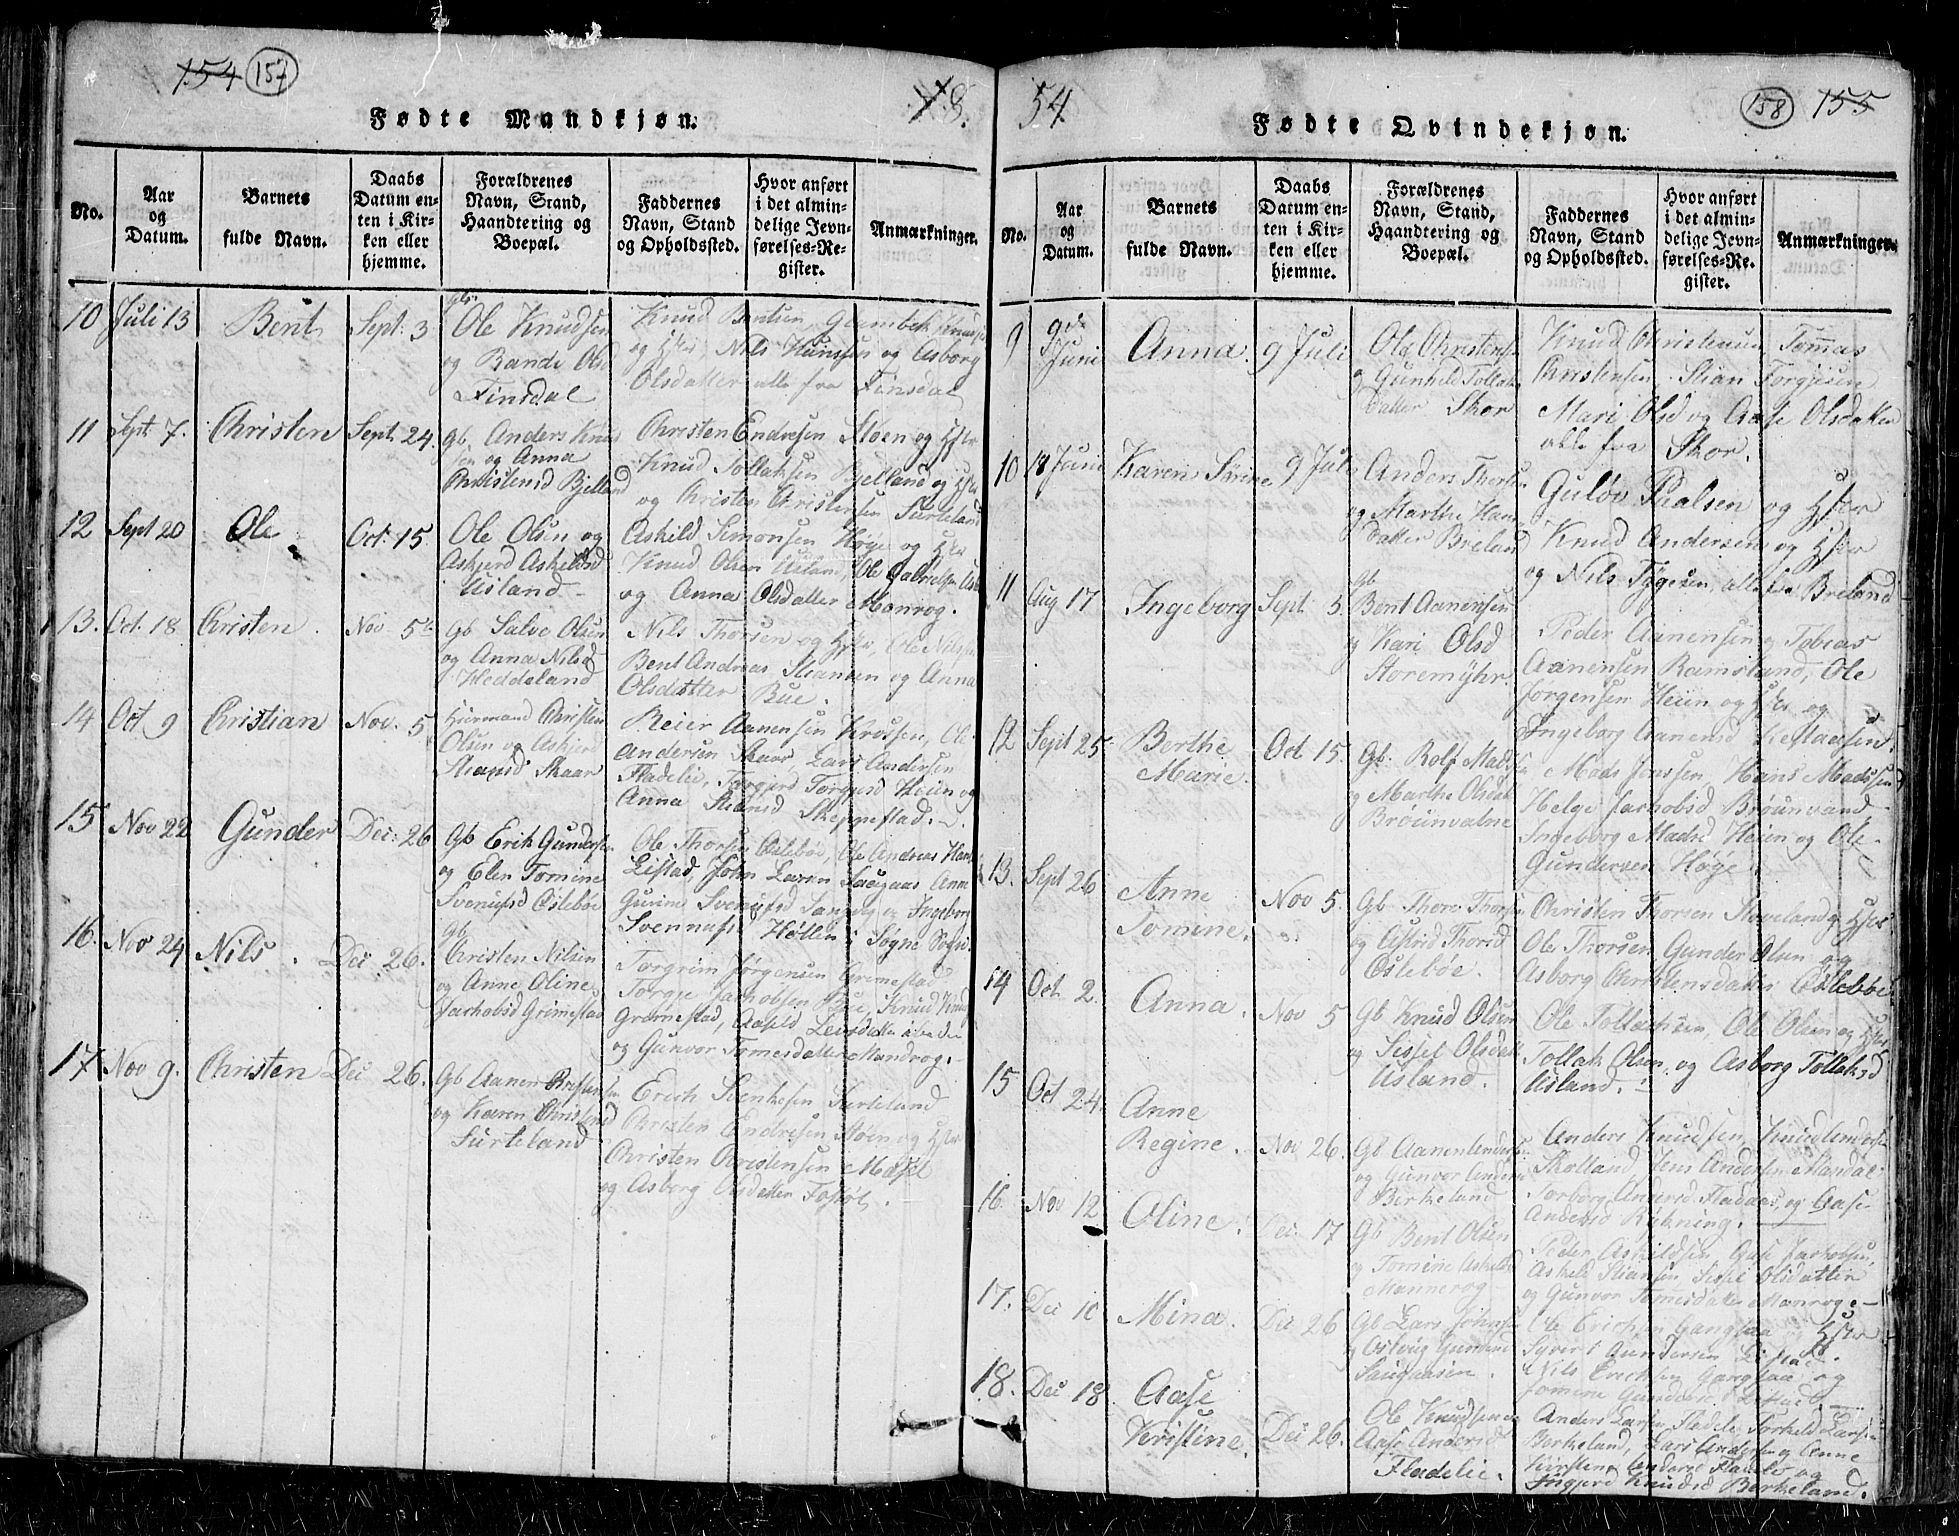 154 157
Fødte Mandkjøn. 18.
No.
Aar og Datum.
Barnets fulde Navn.
Daabs Datum enten i Kirken eller hjemme.
Forældrenes Navn, Stand, Haandtering og Boepæl.
Faddernes Navn, Stand og Opholdssted.
Hvor anført i det almindelige Jevnførelses-Register.
Anmærkninger.
10 Juli 13 Bent Sept. 3
Gb.
Ole Knudsen
og Rande Olsd
Finsdal
Knud Bentsen
og Hstr, Nils Hansen og Asborg
Olsdatter alle fra Finsdal
11 Sept 7. Christen Sept. 24.
Gb. Anders Knud
sen og Anna
Christensd Bjelland
Christen Endresen Stoen og Hstr
Knud Tollaksen Bjelland og Hstr
og Christen Christensen Surteland
12 Sept 20 Ole Oct. 15
Ole Olsen og
Askjerd Askildsd
Uisland
Askild Simonsen Høge og Hstr
Knud Olsen Uisland, Ole Gabrielsen
og Anna Olsdatter Monrog.
13. Oct. 18 Christen Nov 5te
Gb Salve Olsen
og Anna Nilsd
Heddeland
Nils Thorsen og Hstr, Ole Nilsen
Bent Andreas Stiansen og Anna
Olsdatter Bue.
14 Oct 9 Christian Nov. 5
Huusmand Christen
Olsen og Askjerd
Stiansd Skaar
Reier Aanensen Krossen, Ole
Andersen Skaar, Lars Andersen
Fladelie, Torgjerd Torgjusd Heien og
Anna Stiansd Skeppestad.
15 Nov 22 Gunder Dec: 26
Gb Erik Gunders
og Elen Tomine
Svenufsd Oslebøe
Ole Thorsen Oslebøe, Ole Andreas Hans
Leistad, John Larsen Saugaas Anne
Gurine Svenufsd og Ingeborg
Svennufs Høllen i Søgne Sogn.
16. Nov 24 Nils. Dec: 26.
Gb
Christen Nilsen
og Anne Oline
Jachobsd Grimestad
Torgrim Jørgensen Grimestad
Torgje Jachobsen Bue, Knud Knud
Gremestad,
og Gunvor Tomesdatter Mandrog.
17 Nov 9. Christen Dec 26.
Gb Aanen
og Karen Christensd
Surteland
Erich Surteland
Christen Endresen Støen og Hstr
Christen Christensen
og Asborg Olsdatter
54 158 155
Fødte Qvindekjøn.
No.
Aar og Datum.
Barnets fulde Navn.
Daabs Datum enten i Kirken eller hjemme.
Forældrenes Navn, Stand, Haandtering og Boepæl.
Faddernes Navn, Stand og Opholdssted.
Hvor anført i det almindelige Jevnførelses-Register.
Anmærkninger.
9 9de Juni Anna. 9 Juli
Ole Christensen
og Gunhild Tollak
datter Skor
Knud Christensen Tomas
Christensen, Stian Torgjesen
Mari Olsd og Aase Olsdatter
alle fra Skor.
10 18 Juni Karen Sirine 9 Juli
Anders Thorsen
og Marthe Han
datter Breland
Guløv Pealsen og Hstr
Knud Andersen og Hstr
og Nils Tygesen, alle fra Breland
11 Aug 17 Ingeborg Sept 3.
Gb
Bent Aanensen
og Kari Olsd
Storemyhr
Peder Aanensen og Tobias
Aanensen Ramsland, Ole
Jørgensen Heien og Hstr og
Ingeborg Aanensd
12 Sept 25 Berthe Marie. Oct 15.
Gb. Rolf Mads
og Marthe Olsdat
Brøunvalne
Mads Jenssen, Hans Madssen
Helge Jachobsd Brøunvand
Ingeborg Madsd Heien og Ole
Gundersen Høge.
13. Sept 26 Anne Tomine. Nov 5.
Gb Thore Thorsen
og Astrid Thorsd
Oslebøe.
Christen Thorsen Støveland og Hstr
Ole Thorsen Gunder Olsen og
Asborg Christensdatter Oslebøe
14 Oct. 2. Anna. Nov 5
Gb Knud Olsen
og Sissel Olsdat
Uisland.
Ole Tollachsen, Ole Olsen og Hstr
Tollak Olsen og Asborg Tollaksd
Uisland.
15 Oct 24. Anne Regine. Nov 26.
Gb Aanen Anders
og Gunvor Anders
Berkeland
Anders Knudsen, Knud Anders
Skolland Jens Andersen Mandal
Torborg Andersd Fladaas, og Aase
Andersd Røkning.
16. Nov 12 Oline. Dec: 17
Gb Bent Olsen
og Tomine Askilds
Mannerog
Peder Askildsen, Aase Jachobsen,
Askild Stiansen, Sissel Olsdatter
og Gunvor Tomesdatter Monrog.
17. Dec 10 Mina. Dec 26
Gb Lars Johnsen
og Ostvig Gundersd
Saughasen.
Ole Erichsen Gangsaa og Hstr
Syvert Gundersen Leistad.
Nils Erichsen Gangsaa og
Tomine Gundersd Leistad.
18. Dec 18 Aase Kristine. Dec 26.
Ole Knudsen og
Aase Andersd
Fladelie.
Anders Larsen Fladelie, Torkeld Larsen
Berkeland, Lars Andersen og Anne
Kirstine Andersd Fladelie og
Ingjerd Knudsd Berkeland.